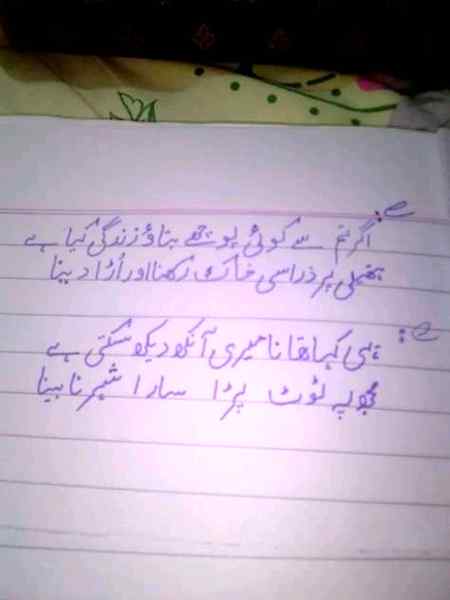 اگر تم سے کوئی پوچھے بتاؤ زندگی کیا ہے
ہتھیلی پر ذرا سی خاک رکھنا اور اُڑا دینا
یہی کہا تھا نا میری آنکھ دیکھ سکتی ہے
مجھ پہ ٹوٹ پڑا سارا شہر نابینا